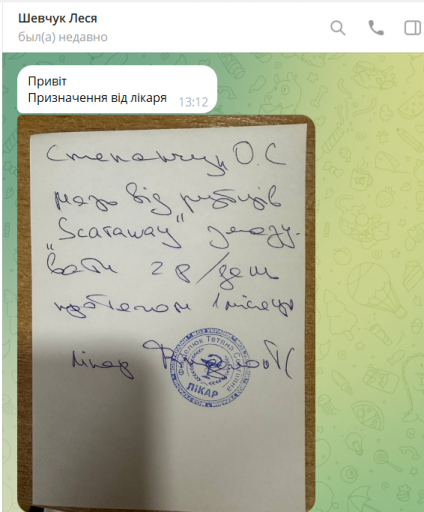 Шевчук Леся
был(а) недавно
Привіт
Призначення від лікаря 13:12
Степанчук О.С
мазь від рубців
„Scaraway" змазу-
вати 2 р/день
протягом 1 місяця
лікар
Тетяна
ЛІКАР